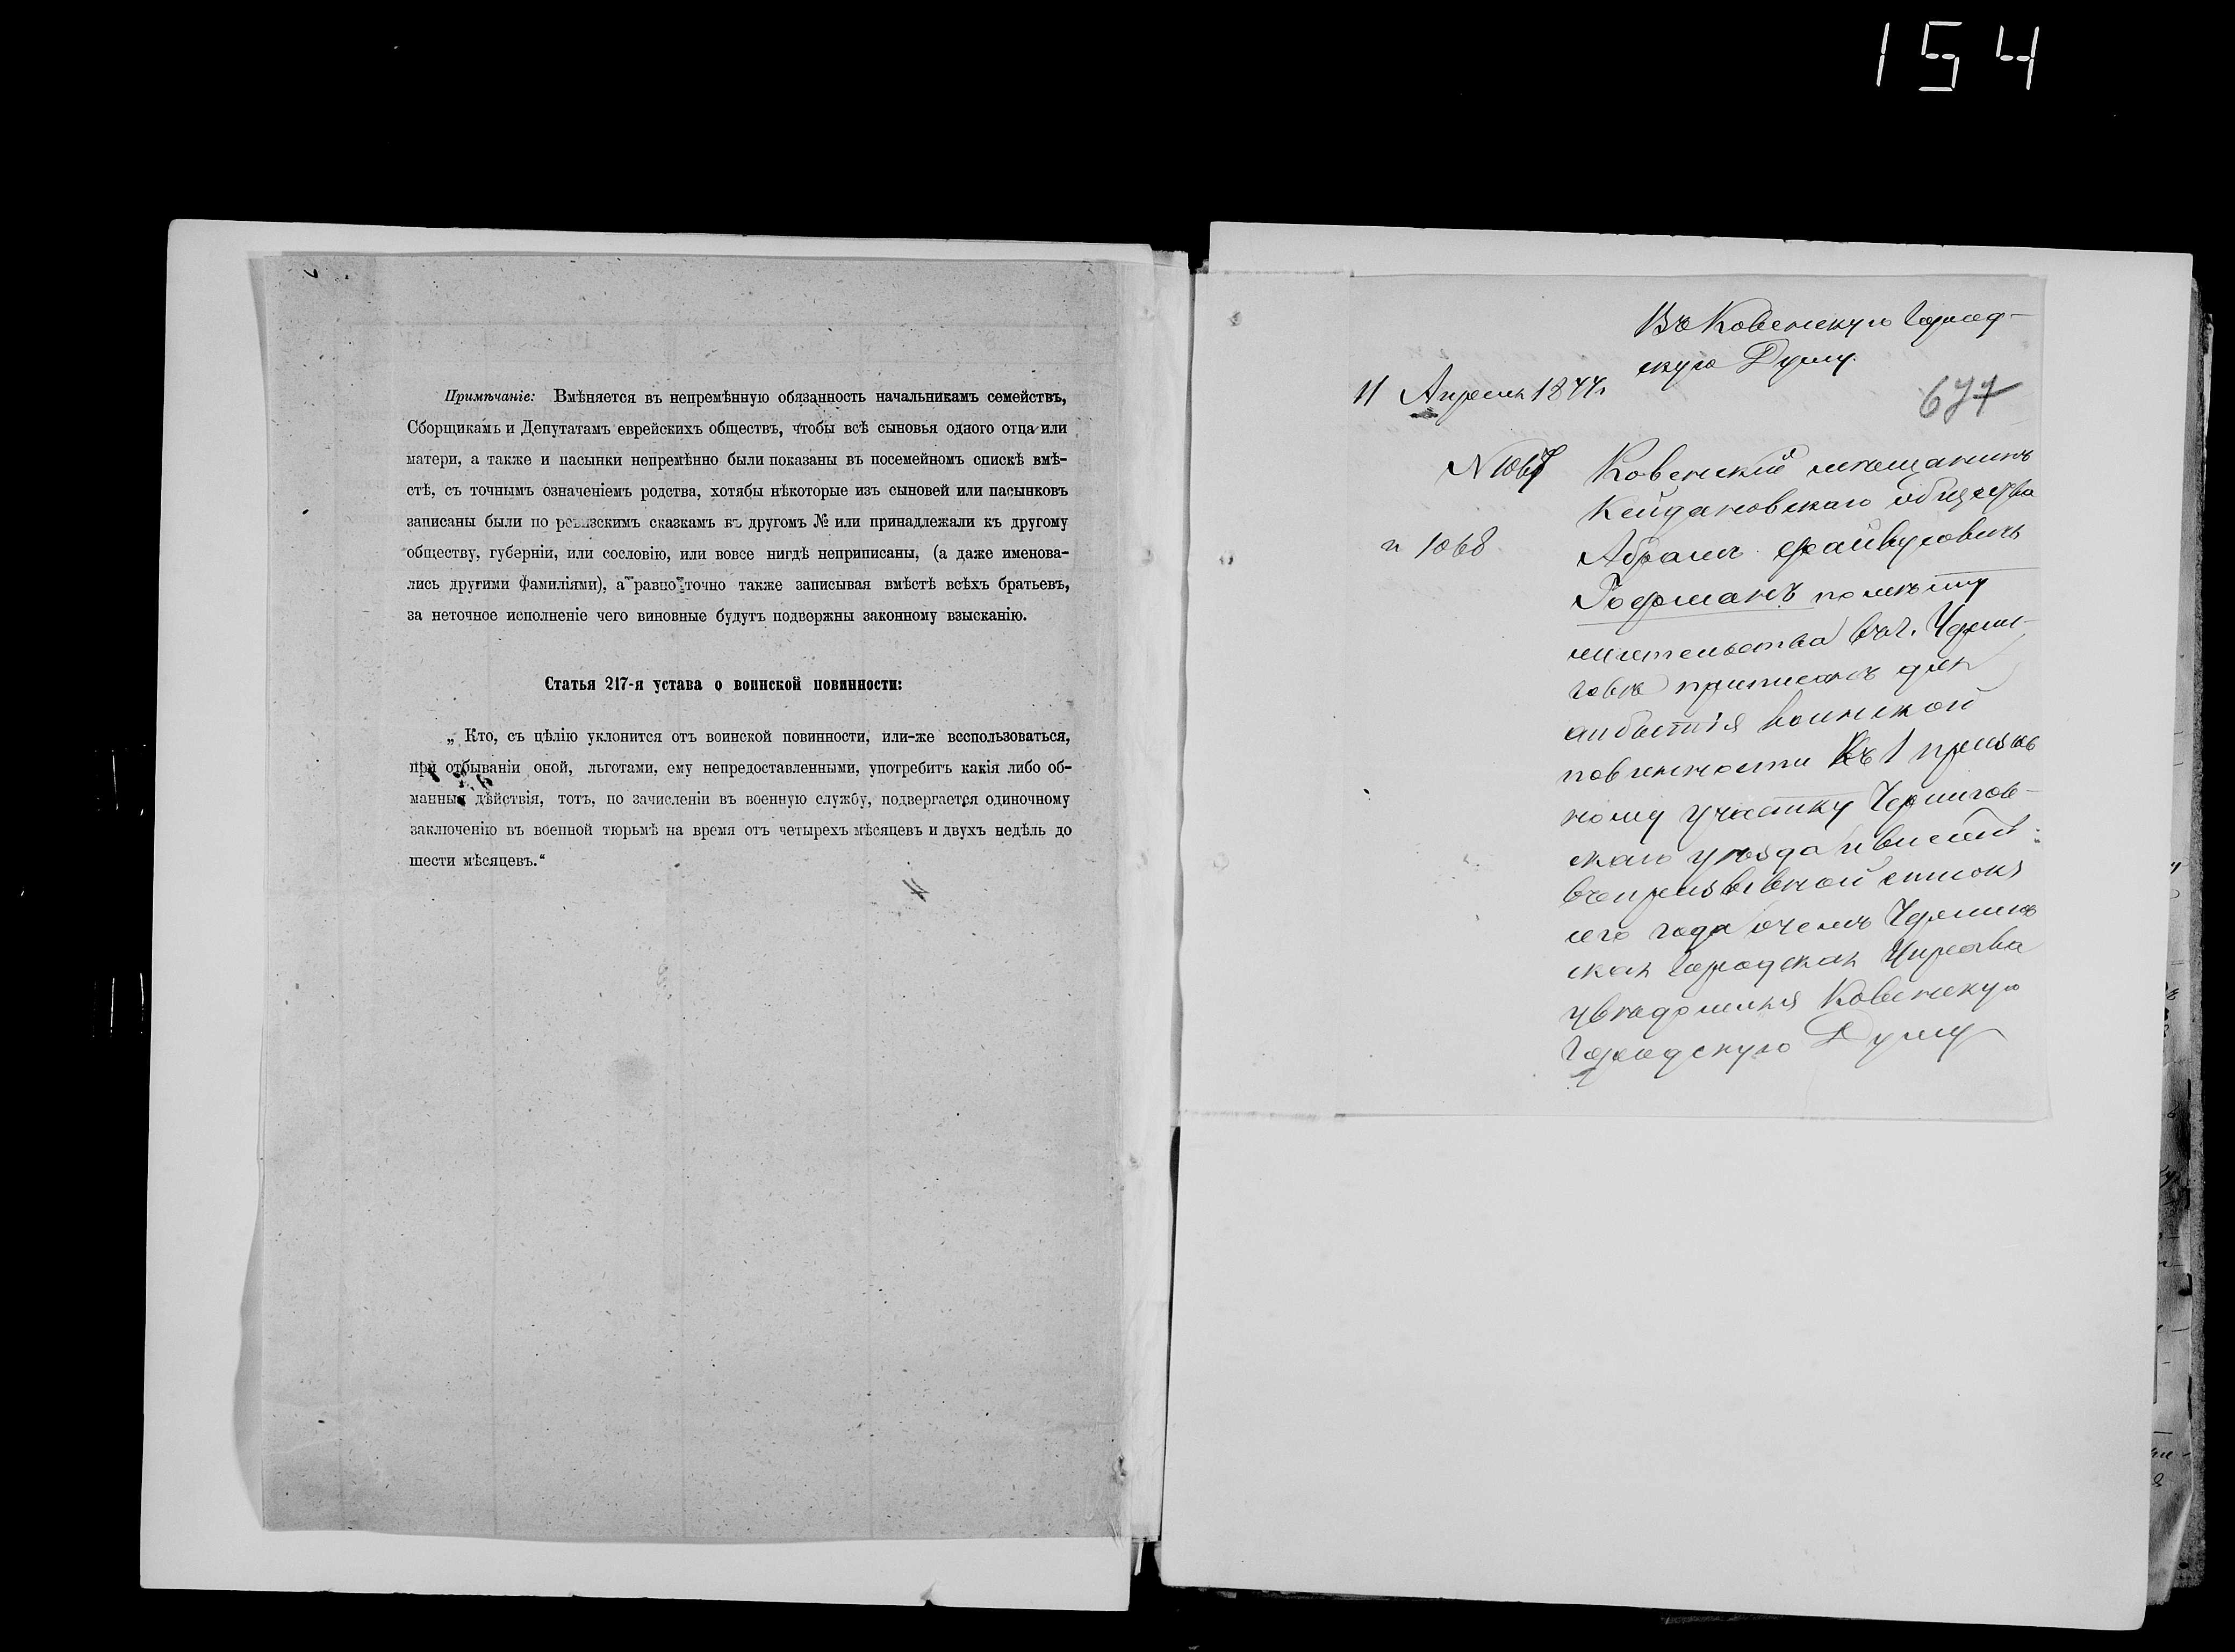 154
Примѣчаніе: Вмѣняется въ непремѣнную обязанность начальникамъ семействъ,
Сборщикамъ и Депутатамъ еврейскихъ обществъ, чтобы всѣ сыновья одного отца или
матери, а также и пасынки непремѣнно были показаны въ посемейномъ спискѣ вмѣ-
стѣ, съ точнымъ означеніемъ родства, хотябы нѣкоторые изъ сыновей или пасынковъ
записаны были по ревизскимъ сказкамъ въ другомъ № или принадлежали къ другому
обществу, губерніи, или сословію, или вовсе нигдѣ неприписаны, (а даже именова-
лись другими фамиліями), а равно точно также записывая вмѣстѣ всѣхъ братьевъ,
за неточное исполненіе чего виновные будутъ подвержны законному взысканію.
Статья 217-я устава о воинской повинности:
„ Кто, съ цѣлію уклонится отъ воинской повинности, или-же воспользоваться,
при отбываніи оной, льготами, ему непредоставленными, употребитъ какія либо об-
манныя дѣйствія, тотъ, по зачисленіи въ военную службу, подвергается одиночному
заключенію въ военной тюрьмѣ на время отъ четырехъ мѣсяцевъ и двухъ недѣль до
шести мѣсяцевъ.“
Въ Ковенскую Город-
скую Думу
11 Апреля 1877г.
677
N 1067
Ковенскій мѣщанинъ
Кейдановскаго общества
и 1068
Абрамъ Файвусовичъ
Гофманъ по мѣсту
жительства въ г. Черни-
говѣ приписанъ для
отбытія воинской
повинности къ 1 призыв
ному участку Чернигов-
скаго уѣзда и внесенъ
въ призывной списокъ
сего года о чемъ Чернигов
ская Городская Управа
увѣдомляя Ковенскую
Городскую Думу